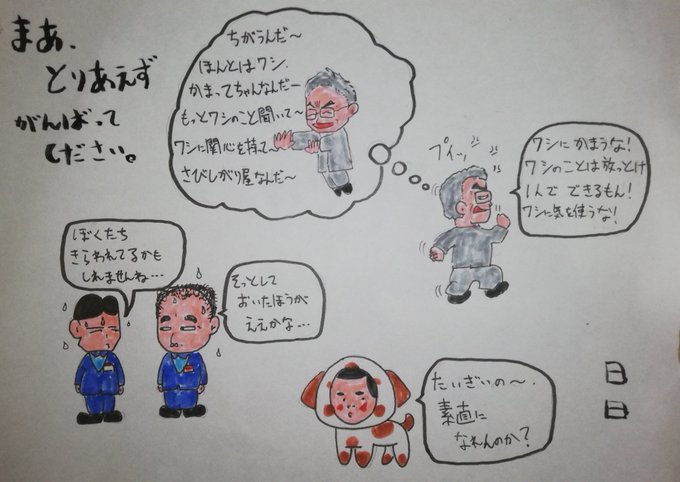 まあ、
とりあえず
がんばって
ください。
ちがうんだ〜
ほんとはワシ、
かまってちゃんなんだー
もっとワシのこと聞いて〜
ワシに関心を持って〜
さびしがり屋なんだ〜
プイッ
ワシにかまうな!
ワシのことは放っとけ
1人で できるもん!
ワシに気を使うな!
ぼくたち
きらわれてるかも
しれませんね…
そっとして
おいたほうが
ええかな…
たいぎいの〜、
素直に
なれんのか?
日
日